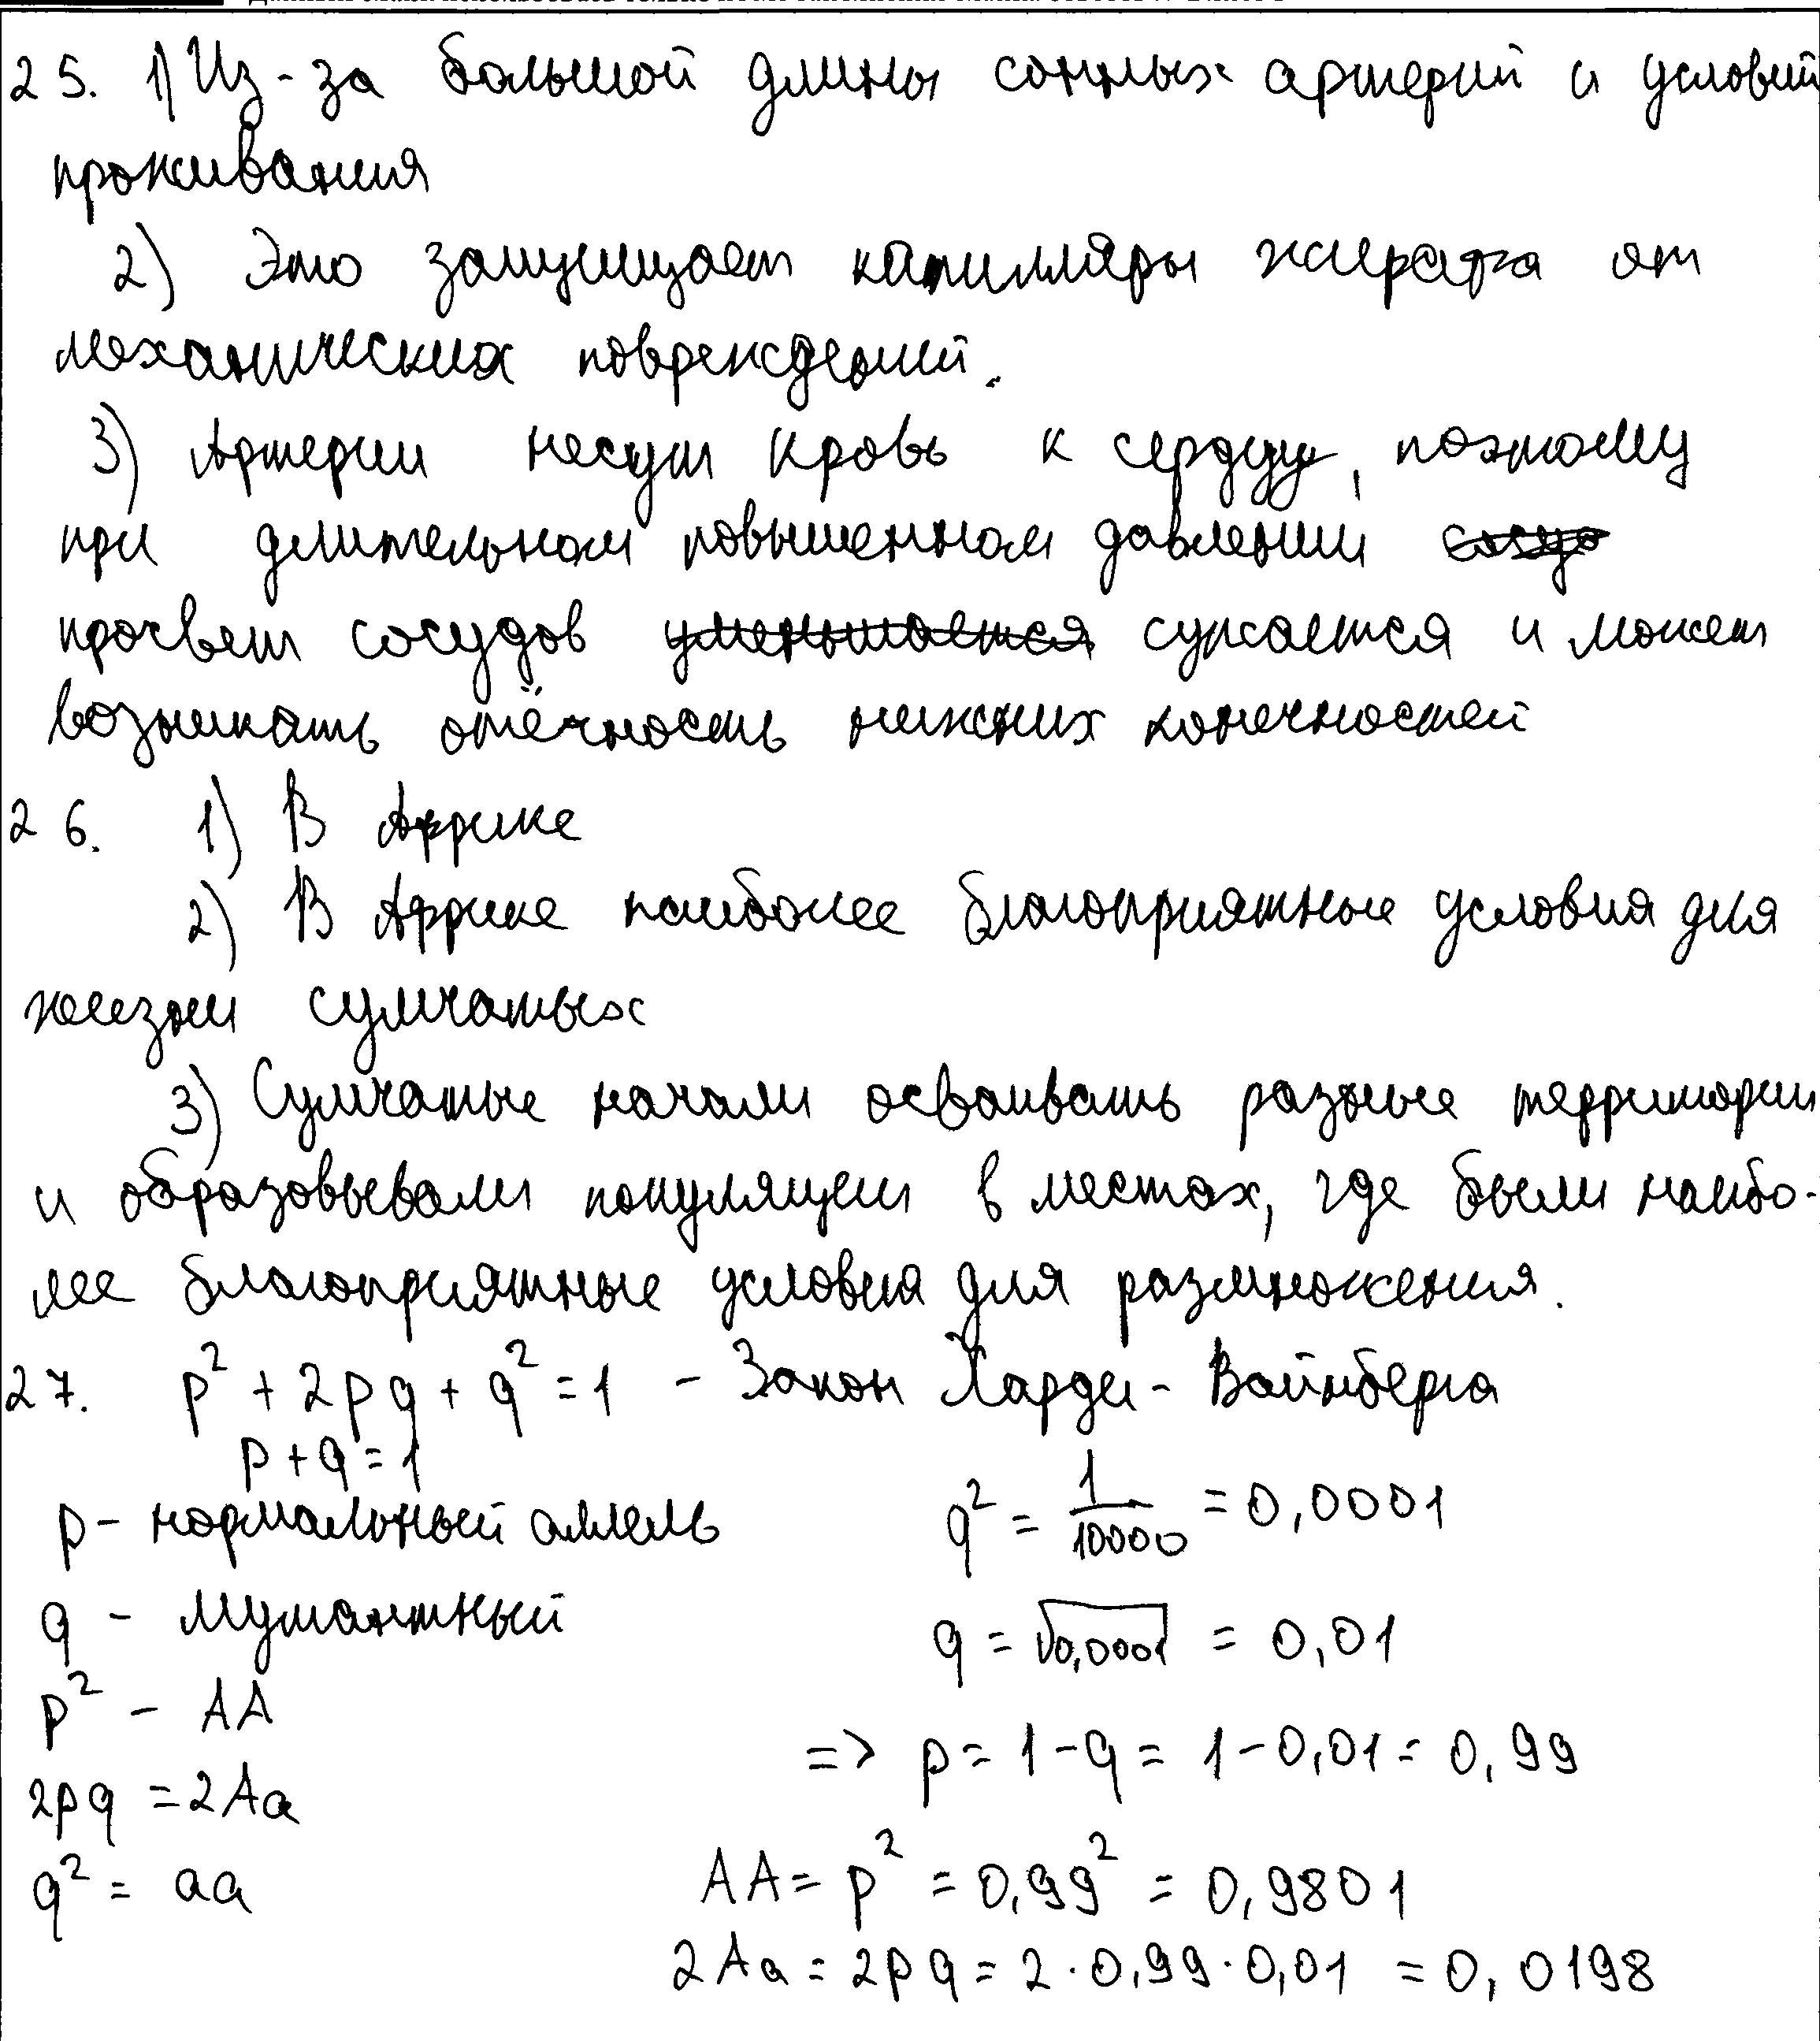 25. 1) Из-за большой длины сонных артерий и условий
проживания
2) Это защищает капилляры жирафа от
механических повреждений.
3) Артерии несут кровь к сердцу, поэтому
при длительном повышенном давлении сосудо
просвет сосудов уменьшается сужается и может
возникать отёчность нижних конечностей
26. 1) В Африке
2) В Африке наиболее благоприятные условия для
жизни сумчатых
3) Сумчатые начали осваивать разные территории
и образовывали популяции в местах, где были наибо-
лее благоприятные условия для размножения.
27. p² + 2pq + q² = 1 - Закон Харди - Вайнберга
p + q = 1
p - нормальный аллель
q² = 1/10000 = 0,0001
q - мутантный
q = √0,0001 = 0,01
p² - AA
=> p = 1 - q = 1 - 0,01 = 0,99
2pq = 2Aa
q² = aa
AA = p² = 0,99² = 0,9801
2Aa = 2pq = 2 · 0,99 · 0,01 = 0,0198